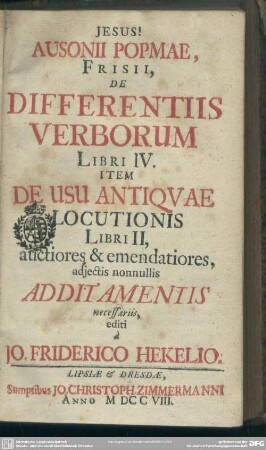 JESUS!
AUSONII POPMAE,
FRISII,
DE
DIFFERENTIIS
VERBORUM
LIBRI IV.
ITEM
DE USU ANTIQVAE
LOCUTIONIS
LIBRI II,
auctiores & emendatiores,
adjectis nonnullis
ADDITAMENTIS
necessariis,
editi
à
JO. FRIDERICO HEKELIO.
LIPSIÆ & DRESDÆ,
Sumptibus JO. CHRISTOPH. ZIMMERMANNI
ANNO M DCC VIII.